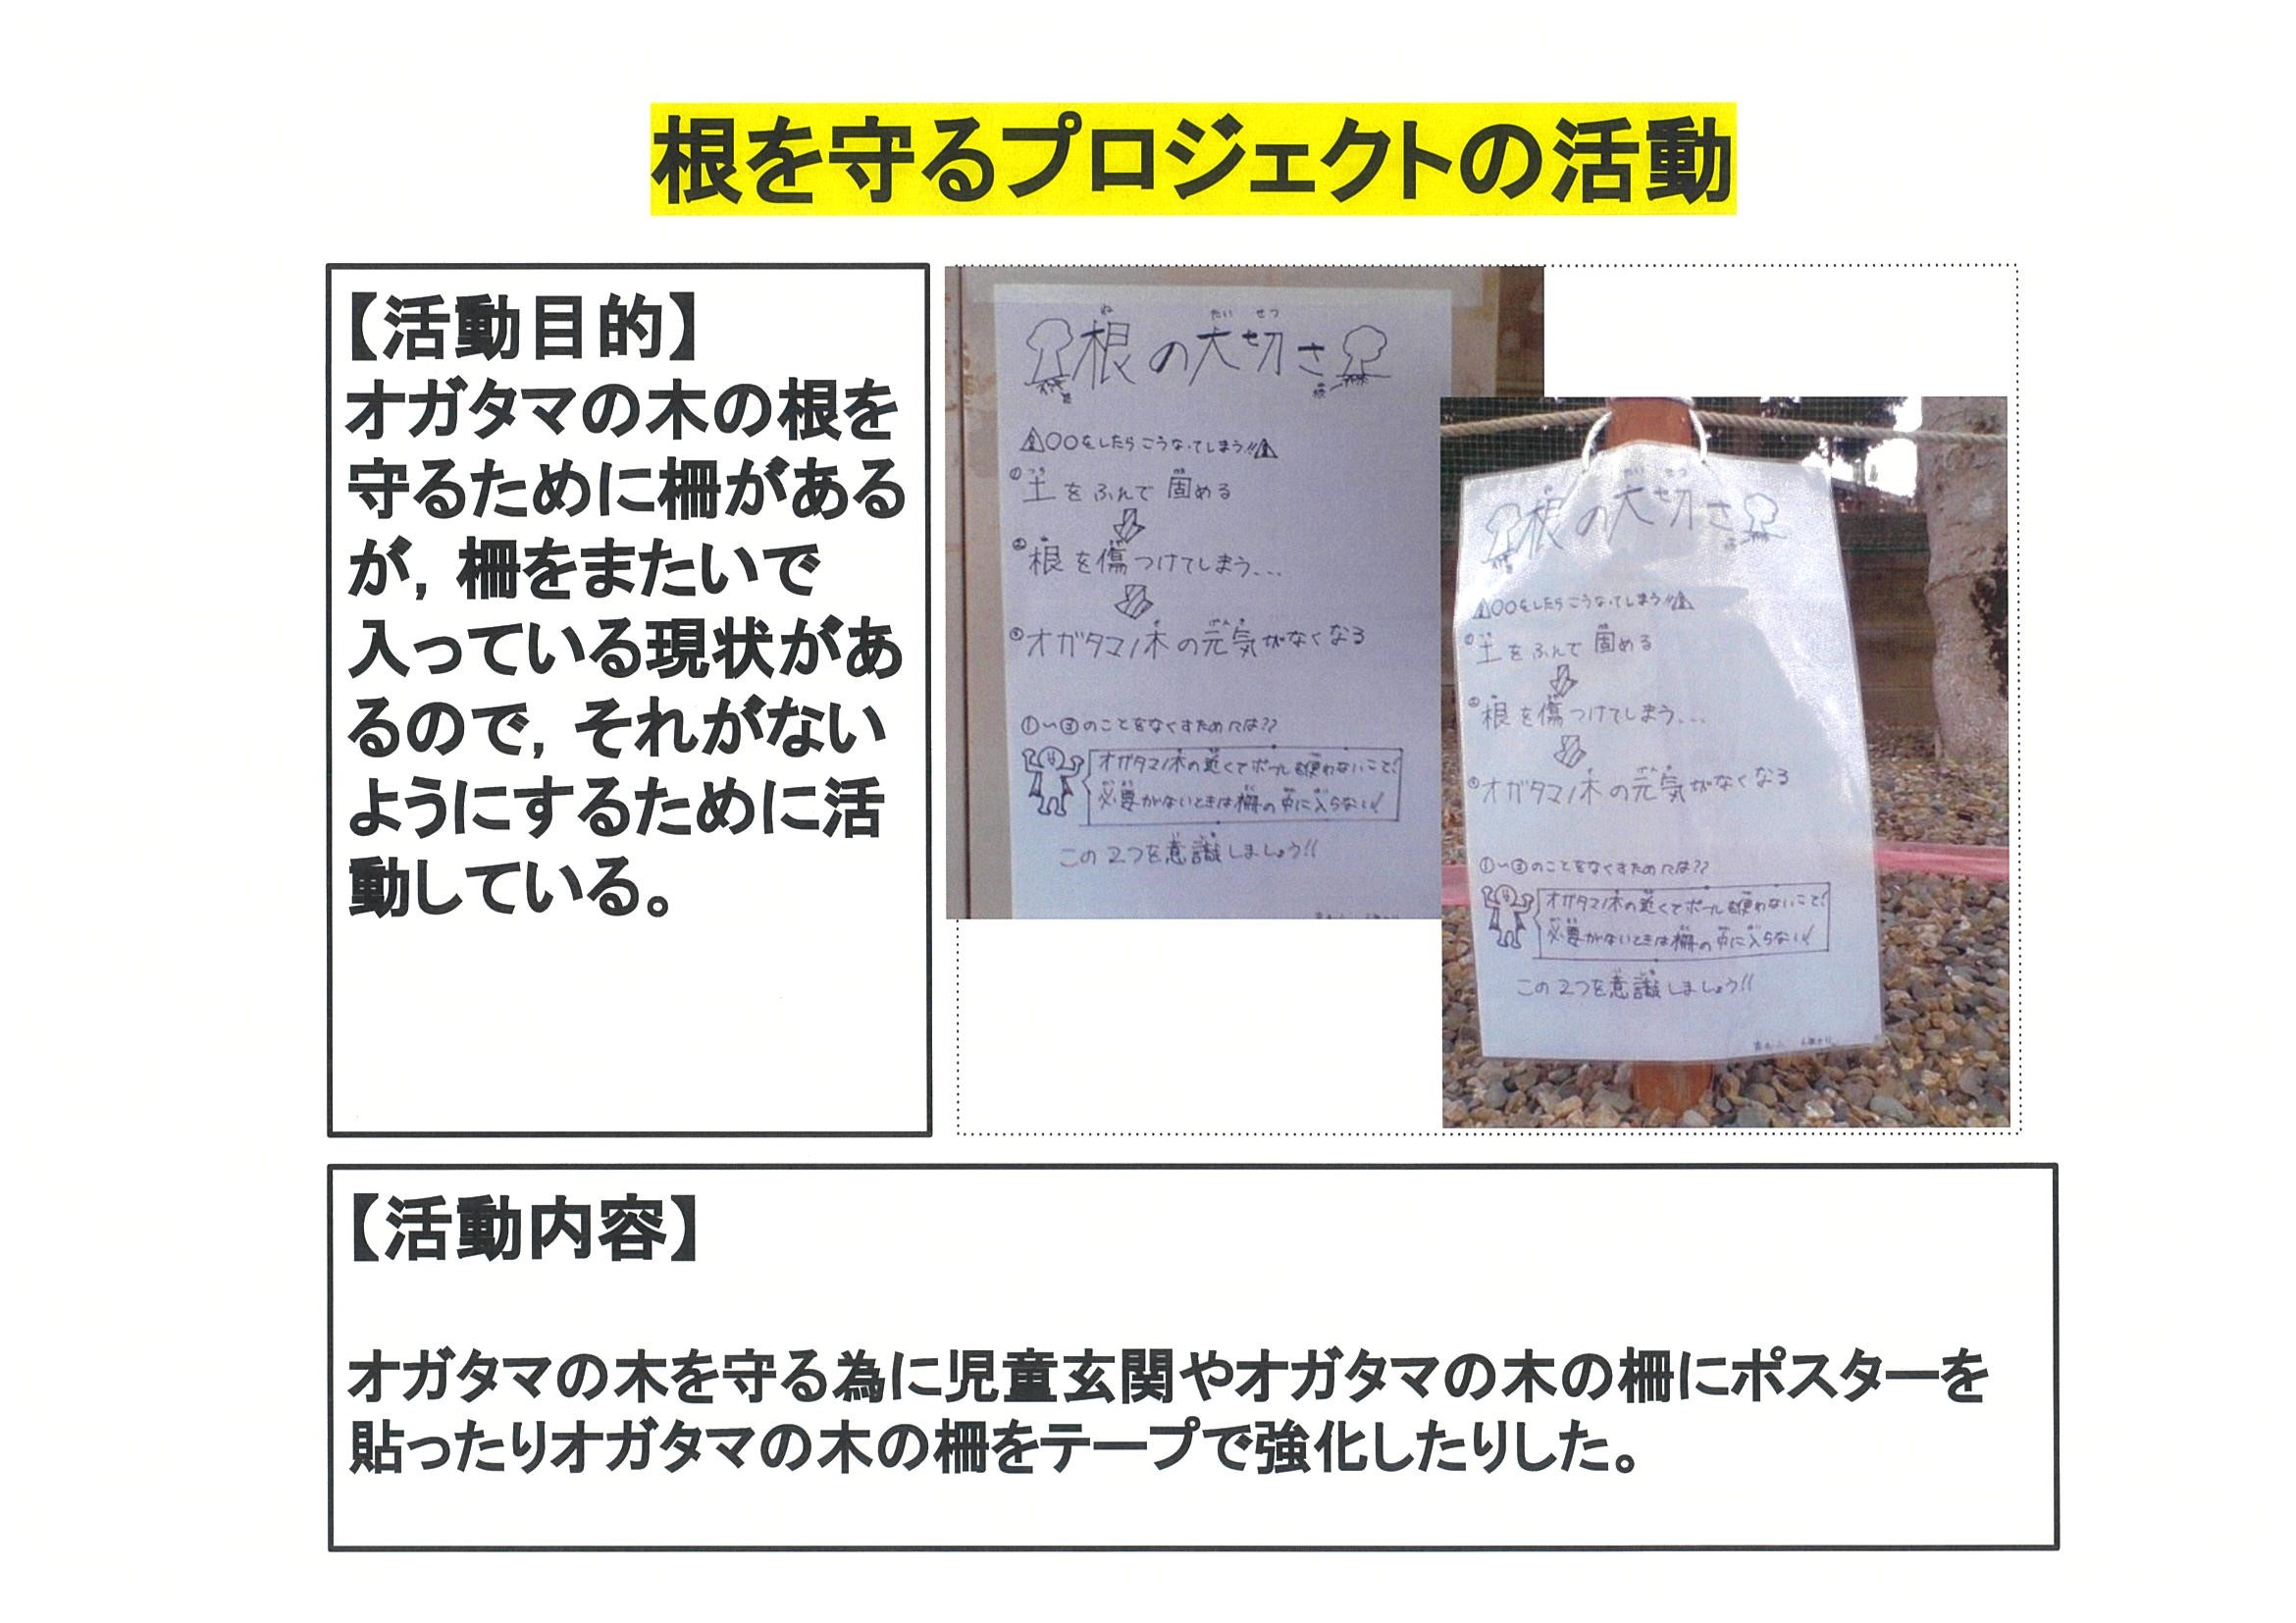 根を守るプロジェクトの活動
【活動目的】
オガタマの木の根を
守るために柵がある
が，柵をまたいで
入っている現状があ
るので，それがない
ようにするために活
動している。
ね たい せつ
根の大切さ
根
⚠〇〇をしたらこうなってしまう!!⚠
①土をふんで固める
②根を傷つけてしまう...
③オガタマノ木の元気がなくなる
①〜③のことをなくすためには??
オガタマノ木の近くでボールを使わないこと!
必要がないときは柵の中に入らない!
この2つを意識しましょう!!
たい せつ
根の大切さ
⚠〇〇をしたらこうなってしまう!!⚠
①土をふんで固める
②根を傷つけてしまう...
③オガタマノ木の元気がなくなる
①〜③のことをなくすためには??
オガタマノ木の近くでボールを使わないこと!
必要がないときは柵の中に入らない!
この2つを意識しましょう!!
【活動内容】
オガタマの木を守る為に児童玄関やオガタマの木の柵にポスターを
貼ったりオガタマの木の柵をテープで強化したりした。